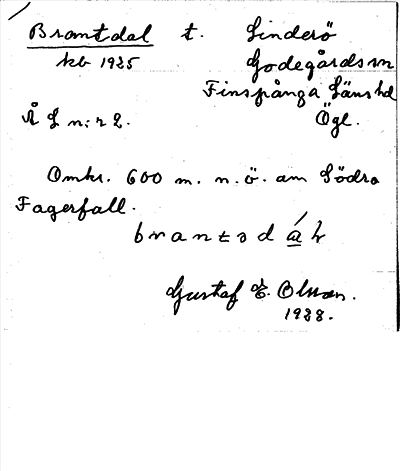 Brantdal t. Linderö
kb 1925 Godegårds sn
Finspånga Läns hd
ÅL n:r 2. Ögl.
Omkr. 600 m. n. ö. om Södra
Fagerfall.
Gustaf E. Olsson.
1928.